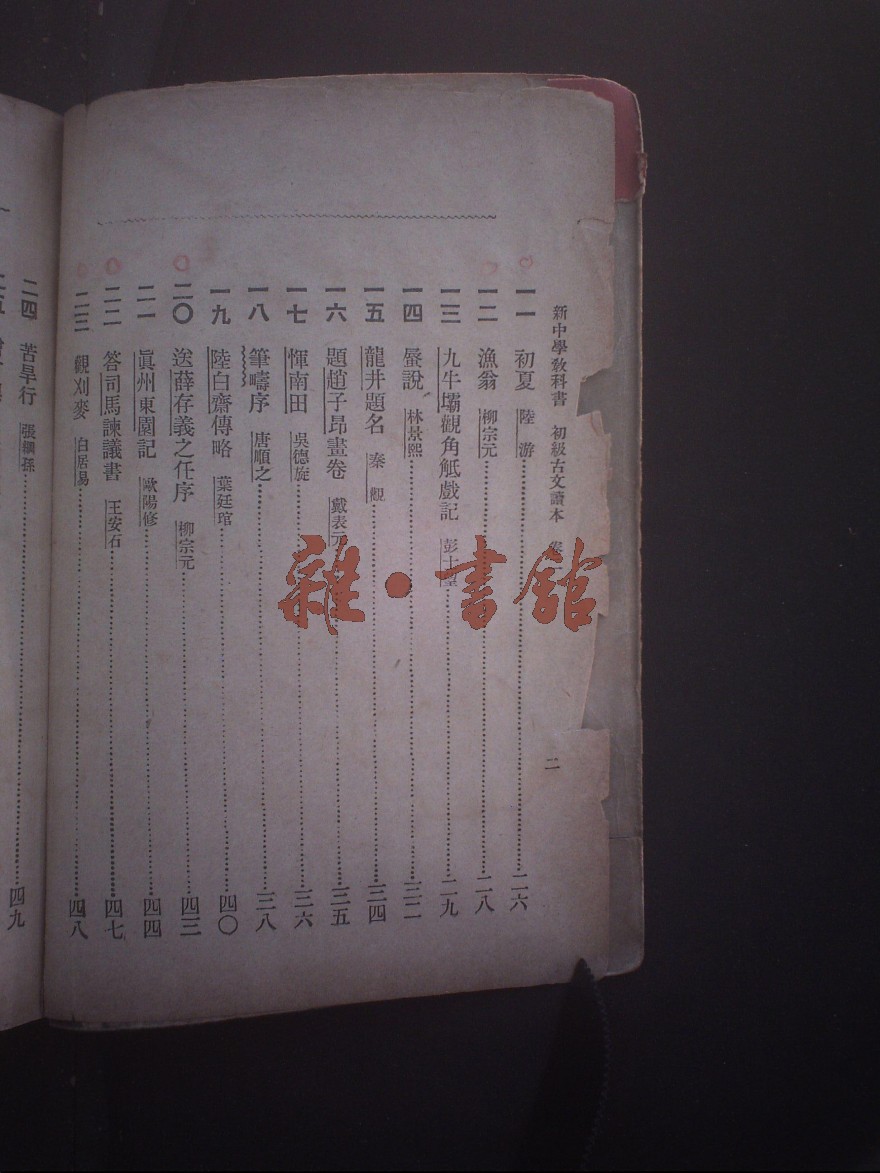 新中學教科書 初級古文讀本
二
一一 初夏 陸游 二六
一二 漁翁 柳宗元 二八
一三 九牛壩觀角觝戲記 彭士望 二九
一四 蜃說 林景熙 三二
一五 龍井題名 秦觀 三四
一六 題趙子昂畫卷 戴表元 三五
一七 惲南田 吳德旋 三六
一八 筆疇序 唐順之 三八
一九 陸白齋傳略 葉廷琯 四〇
二〇 送薛存義之任序 柳宗元 四三
二一 眞州東園記 歐陽修 四四
二二 答司馬諫議書 王安石 四七
二三 觀刈麥 白居易 四八
二四 苦旱行 張綱孫 四九
雜·書館